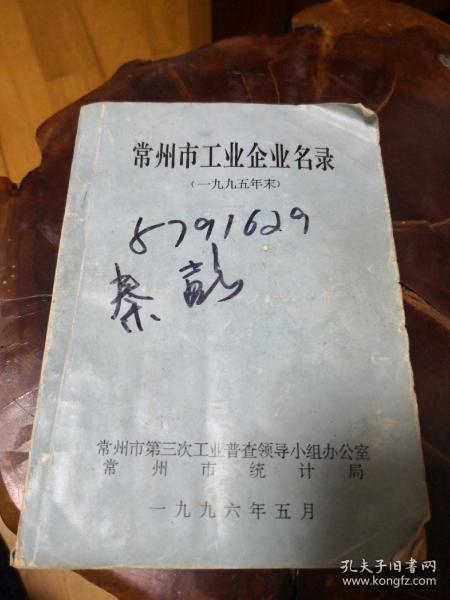 常州市工业企业名录
(一九九五年末)
5791629
秦
常州市第三次工业普查领导小组办公室
常州市统计局
一九九六年五月
孔夫子旧书网
www.kongfz.com